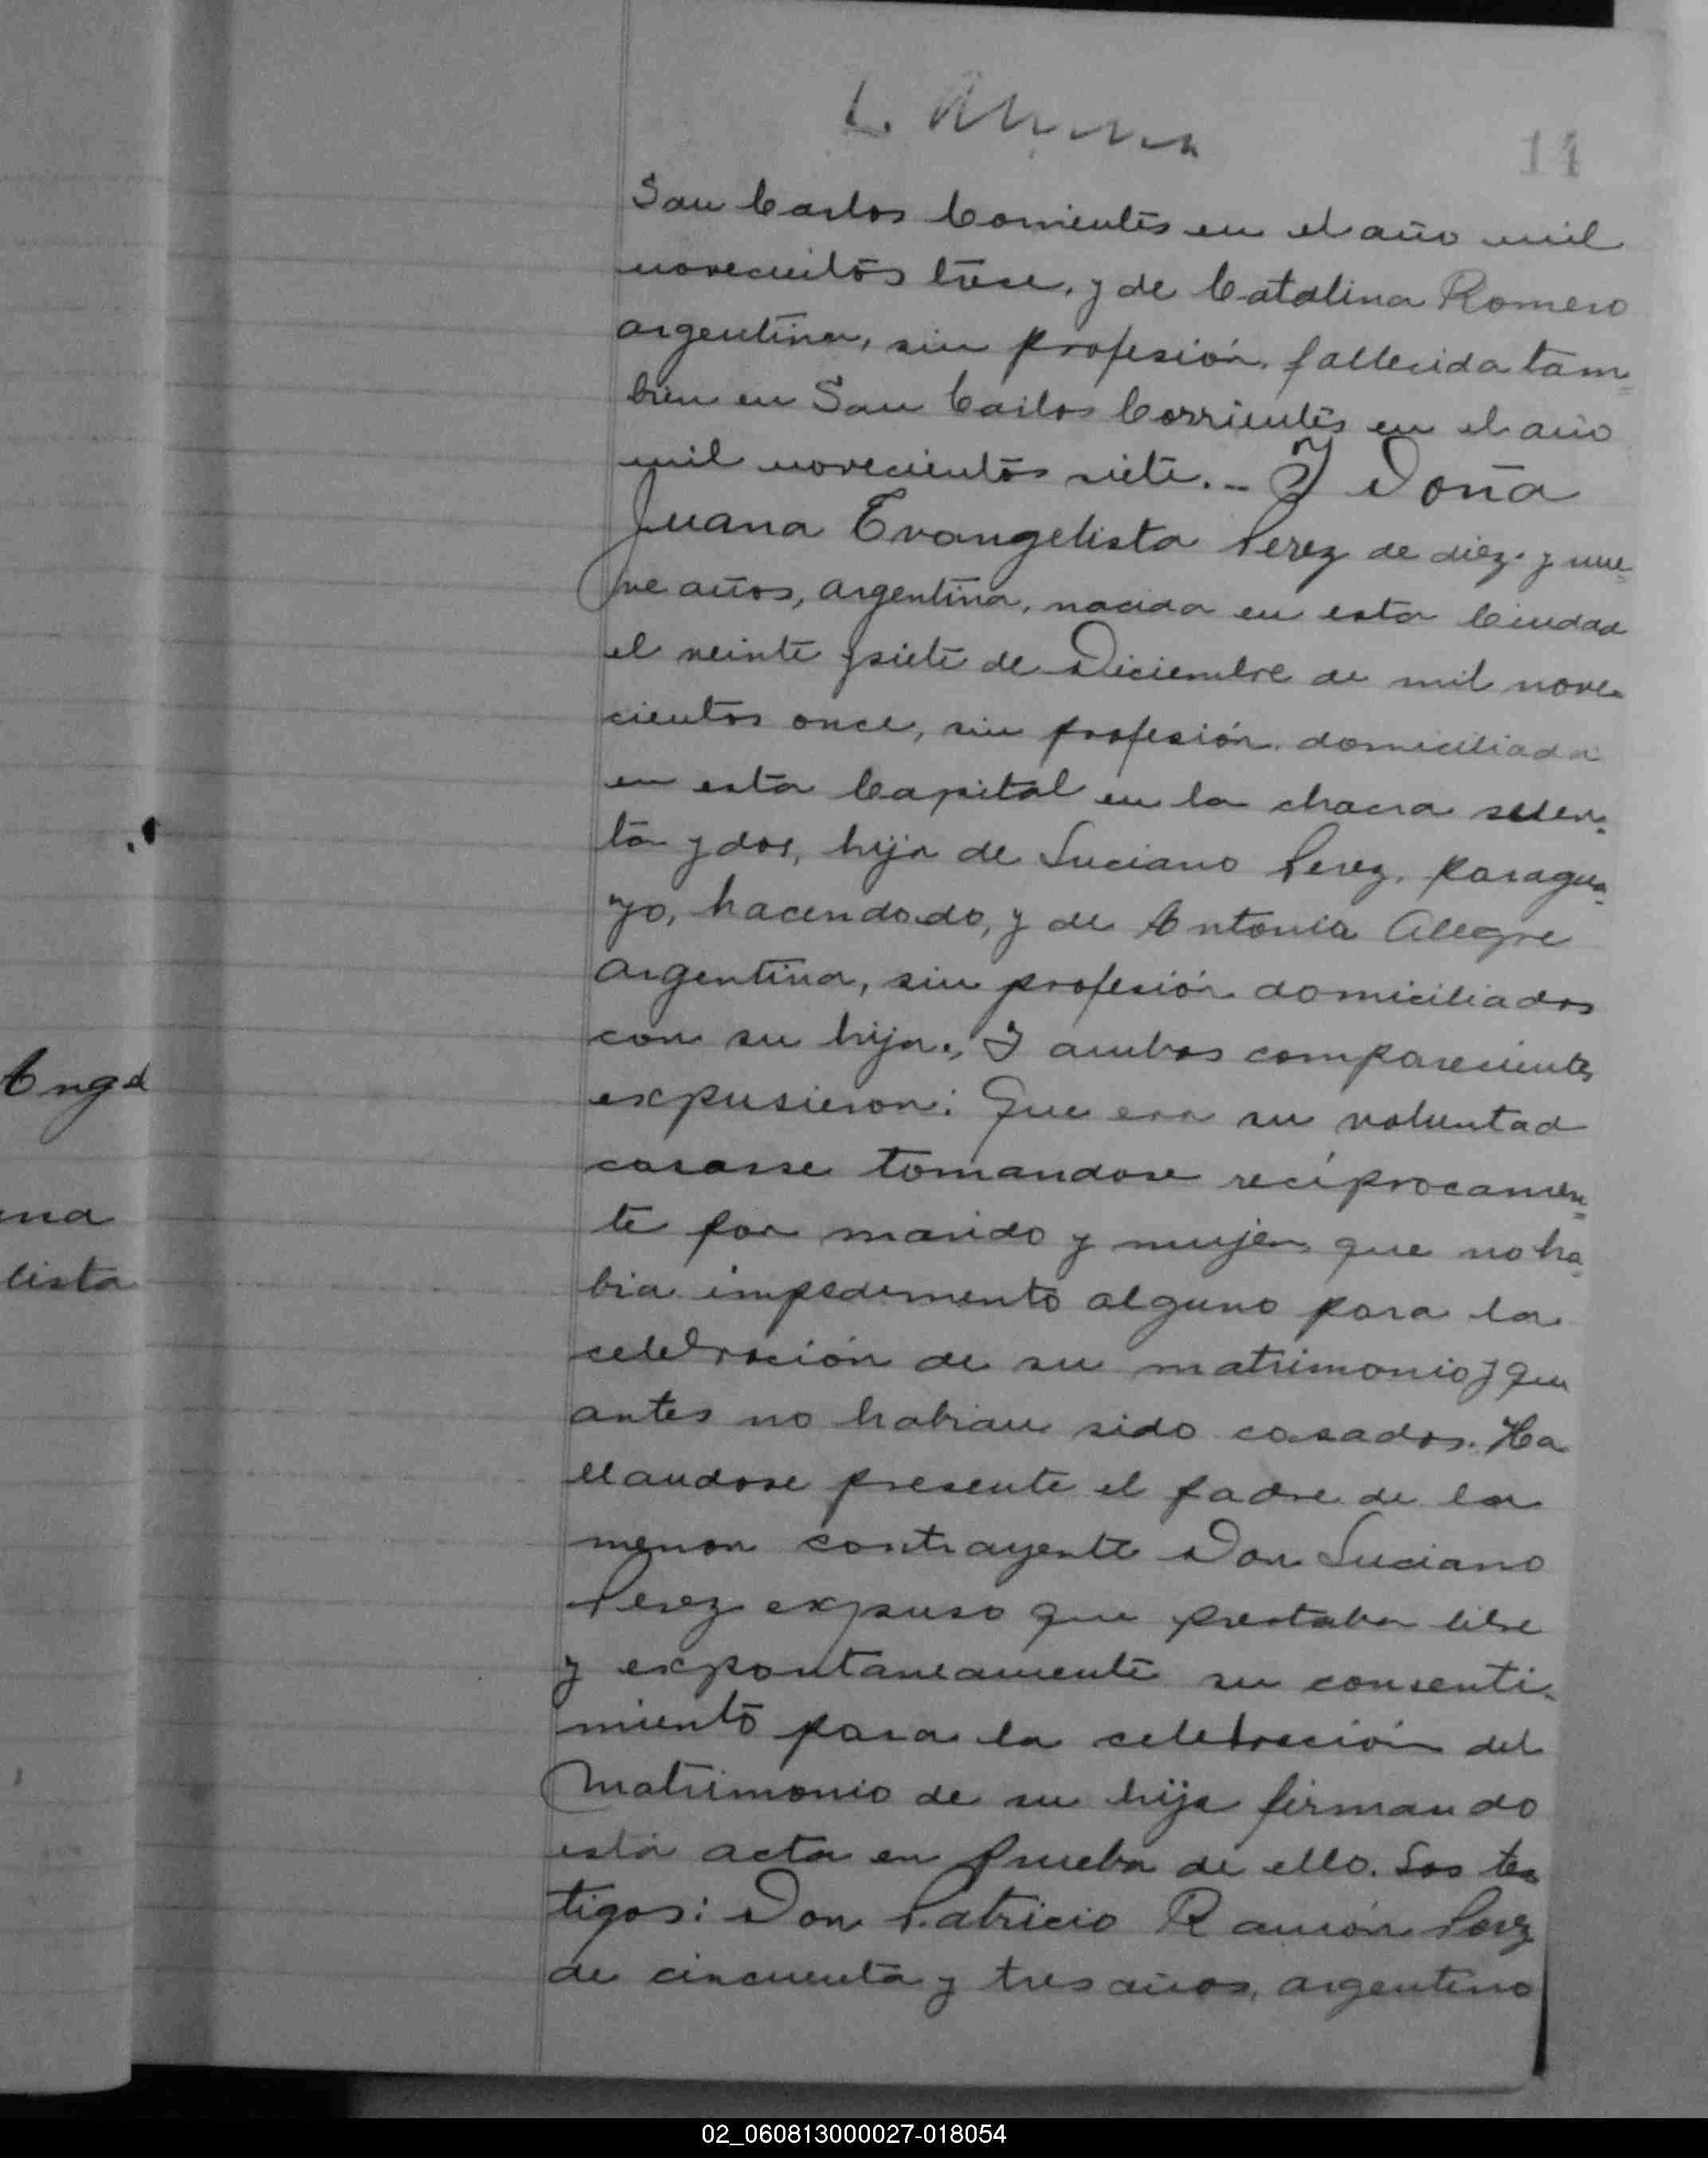 11
San Carlos Corrientes en el año mil
novecientos trese, y de Catalina Romero
argentina, sin profesión, fallecida tam=
bien en San Carlos Corrientes en el año
mil novecientos siete.- Y Doña
Juana Evangelista Perez de diez y nue=
ve años, argentina, nacida en esta Ciudad
el veinte y siete de Diciembre de mil nove-
cientos once, sin profesión, domiciliada
en esta Capital en la chacra sesen-
ta y dos, hija de Luciano Perez, paragua-
yo, hacendado, y de Antonia Alegre
argentina, sin profesión domiciliados
con su hija., Y ambos comparecientes
expusieron: Que era su voluntad
casarse tomandose recíprocamen=
te por marido y mujer, que no ha-
bia impedimento alguno para la
celebración de su matrimonio y que
antes no habian sido casados. Ha
llandose presente el padre de la
menor contrayente Don Luciano
Perez expuso que prestaba libre
y expontaneamente su consenti-
miento para la celebración del
Matrimonio de su hija firmando
esta acta en prueba de ello. Los tes
tigos: Don Patricio Ramón Perez
de cincuenta y tres años, argentino
Ang.l
na
lista
02_060813000027-018054